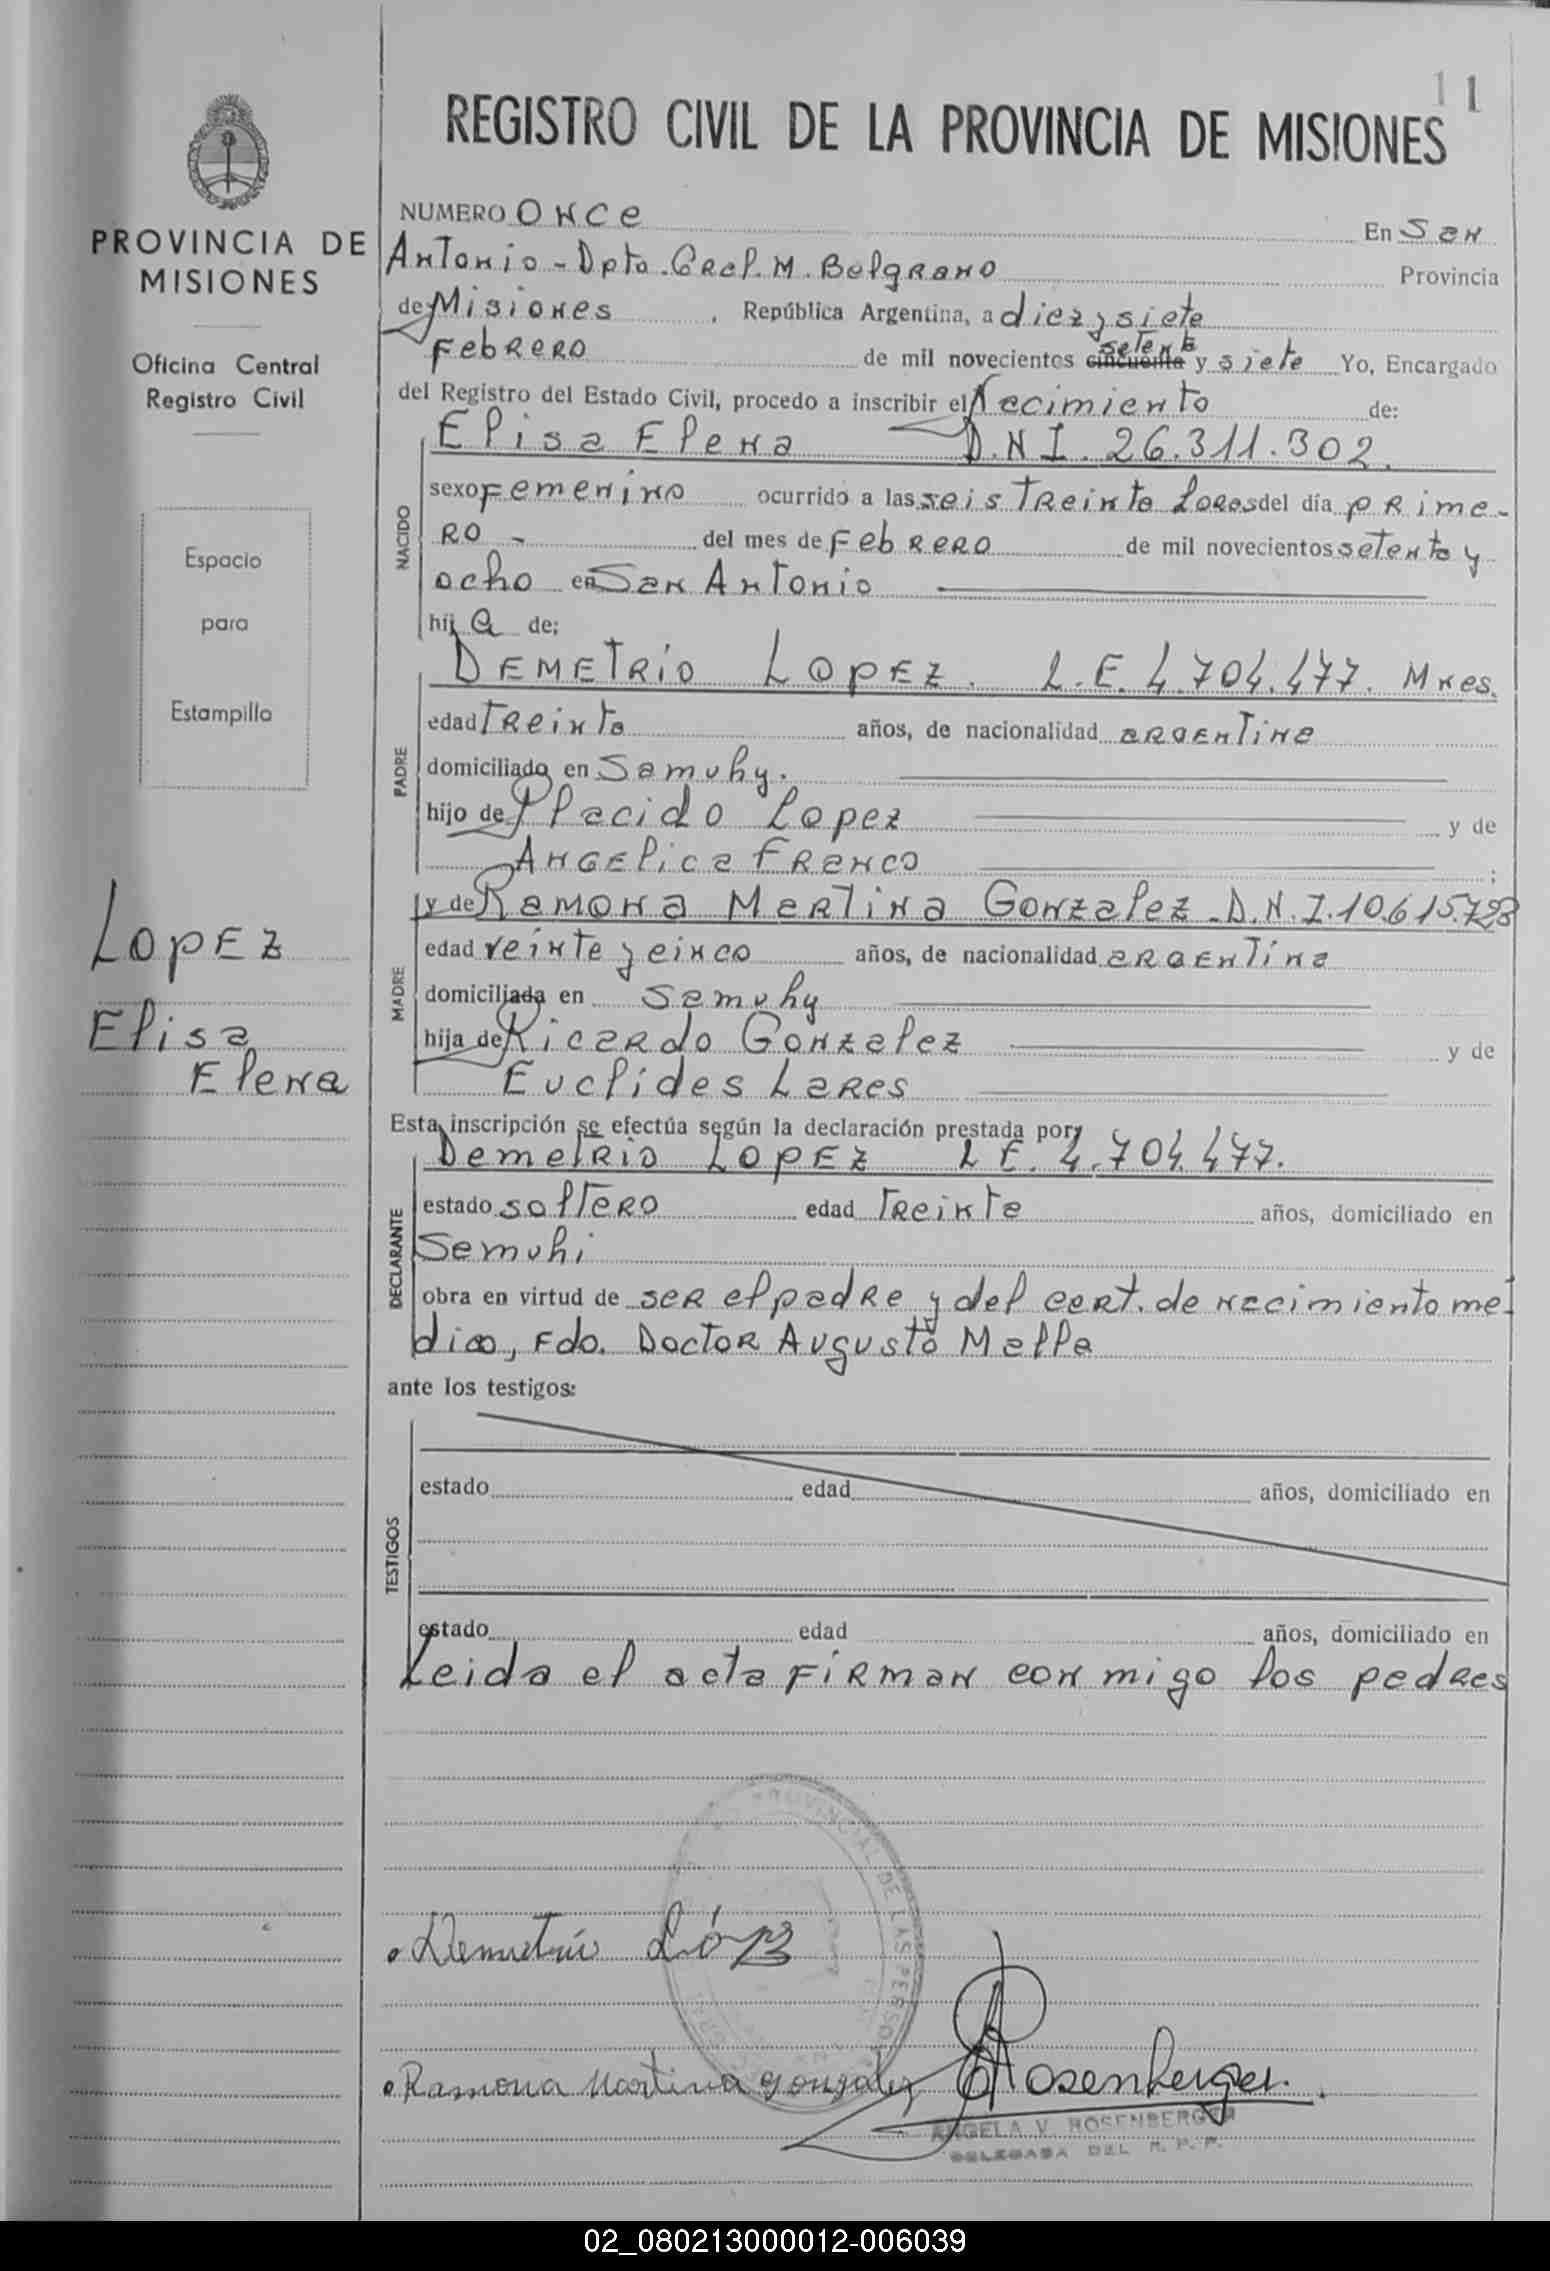 11
REGISTRO CIVIL DE LA PROVINCIA DE MISIONES
PROVINCIA DE
MISIONES
Oficina Central
Registro Civil
Espacio
para
Estampilla
LOPEZ
Elisa
Elena
NUMERO ONCe En San
Antonio - Dpto. Gral. M. Belgrano Provincia
de Misiones, República Argentina, a diez y siete
Febrero de mil novecientos cincuenta setenta y siete Yo, Encargado
del Registro del Estado Civil, procedo a inscribir el Nacimiento de:
NACIDO
Elisa Elena D.N.I. 26.311.302.
sexo Femenino ocurrido a las seis Treinta horas del día prime-
RO - del mes de Febrero de mil novecientos setenta y
ocho en San Antonio
hij a de;
PADRE
DEMETRIO LOPEZ. L.E. 4.704.477. Mnes.
edad Treinta años, de nacionalidad argentina
domiciliado en Samuhy.
hijo de Placido Lopez y de
Angelica Franco ;
MADRE
y de Ramona Martina Gonzalez D.N.I. 10.615.728
edad veinte y cinco años, de nacionalidad argentina
domiciliada en Samuhy
hija de Ricardo Gonzalez y de
Euclides Lares
Esta inscripción se efectúa según la declaración prestada por
DECLARANTE
Demetrio LOPEZ L.E. 4.704.477.
estado solTERO edad Treinta años, domiciliado en
Samuhi
obra en virtud de ser el padre y del cert. de nacimiento me-
dico, Fdo. Doctor Augusto Malla
ante los testigos:
TESTIGOS
estado edad años, domiciliado en
estado edad años, domiciliado en
Leida el acta firman con migo los padres
Demetrio López
Ramona Martina Gonzalez Rosenberger.
ANGELA V. ROSENBERGER
DELEGADA DEL R. P. P.
02_080213000012-006039